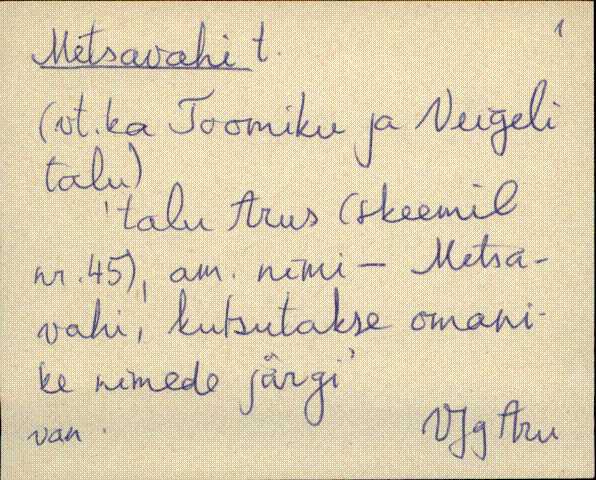 1
Metsavahi t.
(vt. ka Toomiku ja Veigeli
talu)
'talu Arus (skeemil
nr. 45), am. nimi – Metsa-
vahi, kutsutakse omani-
ke nimede järgi'
van. VJg Aru